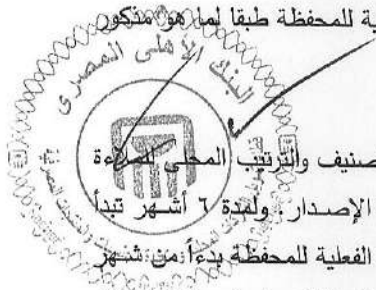 ية للمحفظة طبقا لما هو مذكور
البنك الأهلى المصرى
صنيف والترتيب المحلى للملاءة
الإصدار . ولمدة ٦ أشهر تبدأ
الفعلية للمحفظة بدءاً من شهر